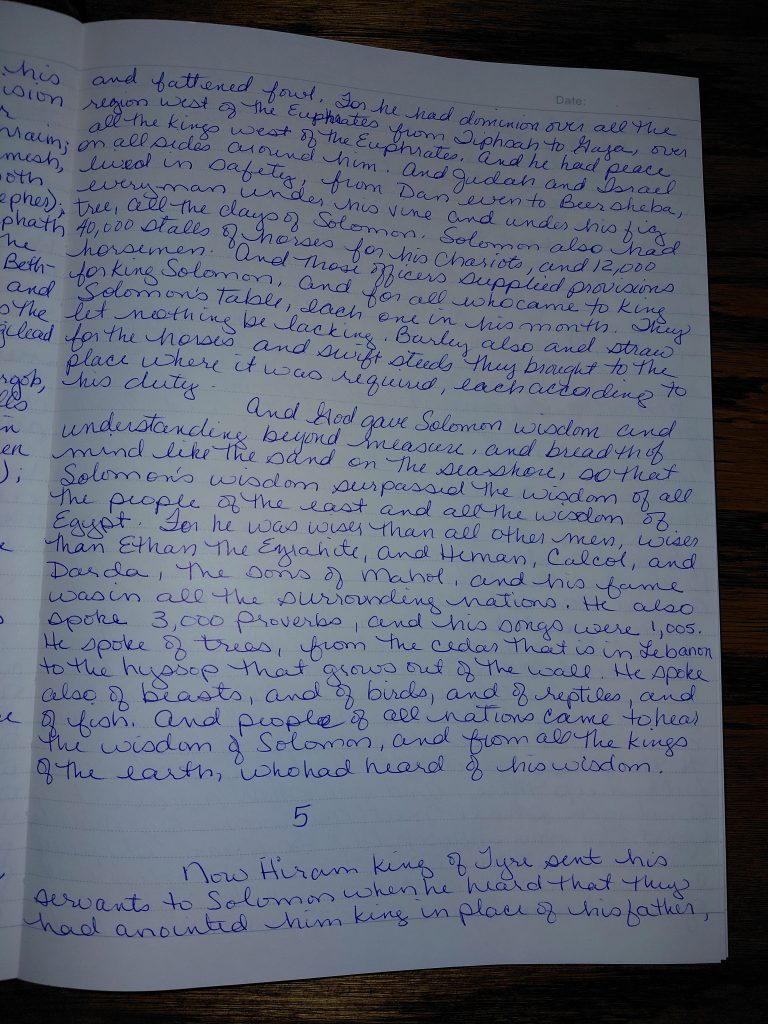 his
ision
r
hraim;
mesh,
oth
epher);
phath
he
Beth-
and
s the
gilead
rgob,
n
en
);
Date:
and fattened fowl. For he had dominion over all the
region west of the Euphrates from Tiphsah to Gaza, over
all the kings west of the Euphrates. And he had peace
on all sides around him. And Judah and Israel
lived in safety, from Dan even to Beersheba,
every man under his vine and under his fig
tree, all the days of Solomon. Solomon also had
40,000 stalls of horses for his chariots, and 12,000
horsemen. And those officers supplied provisions
for King Solomon, and for all who came to King
Solomon's table, each one in his month. They
let nothing be lacking. Barley also and straw
for the horses and swift steeds they brought to the
place where it was required, each according to
his duty.
And God gave Solomon wisdom and
understanding beyond measure, and breadth of
mind like the sand on the seashore, so that
Solomon's wisdom surpassed the wisdom of all
the people of the east and all the wisdom of
Egypt. For he was wiser than all other men, wiser
than Ethan the Ezrahite, and Heman, Calcol, and
Darda, the sons of Mahol, and his fame
was in all the surrounding nations. He also
spoke 3,000 proverbs, and his songs were 1,005.
He spoke of trees, from the cedar that is in Lebanon
to the hyssop that grows out of the wall. He spoke
also of beasts, and of birds, and of reptiles, and
of fish. And people of all nations came to hear
the wisdom of Solomon, and from all the kings
of the earth, who had heard of his wisdom.
5
Now Hiram king of Tyre sent his
servants to Solomon when he heard that they
had anointed him king in place of his father,